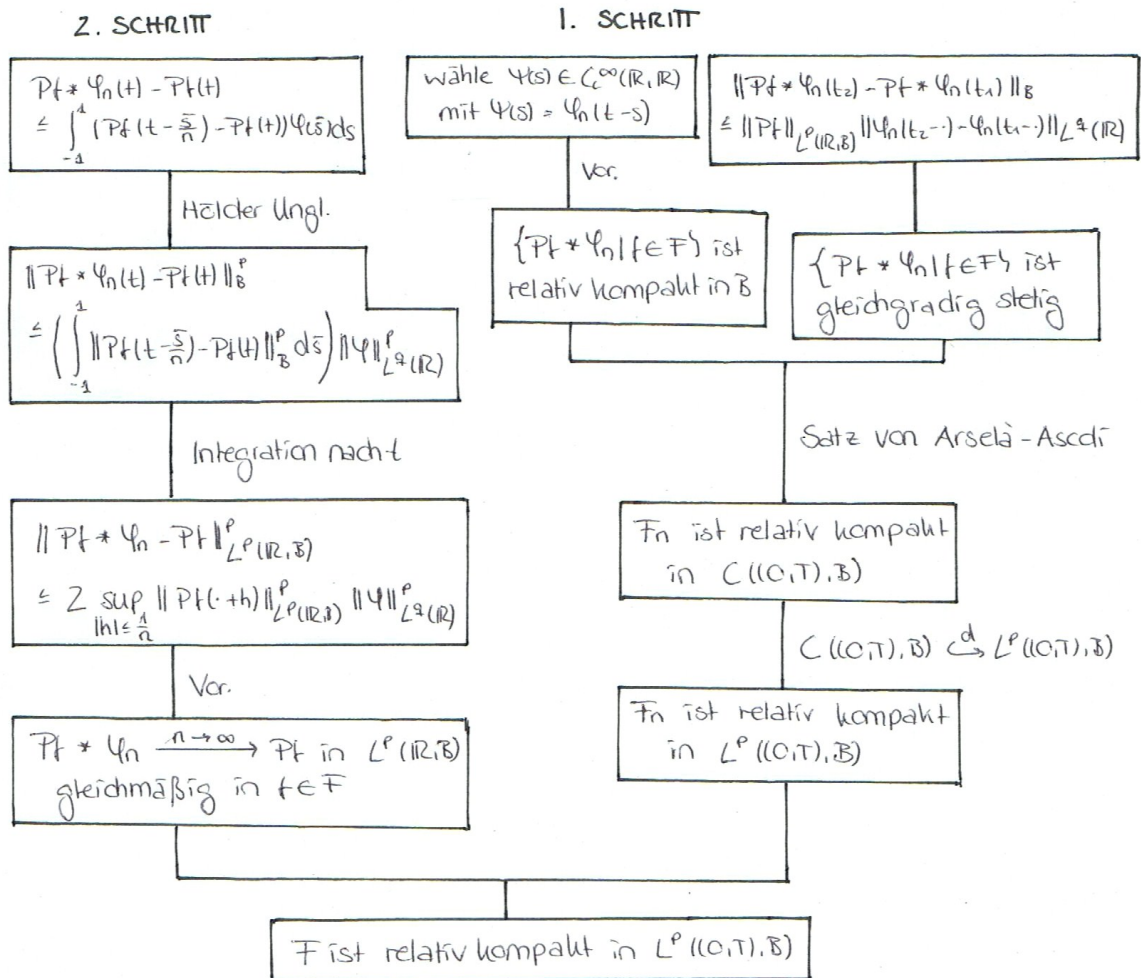 2. SCHRITT
Pf * φn(t) - Pf(t)
≤ ∫_{-1}^{1} (Pf(t - s̄/n) - Pf(t)) φ(s̄) ds
Hölder Ungl.
‖Pf * φn(t) - Pf(t)‖_B^p
≤ (∫_{-1}^{1} ‖Pf(t - s̄/n) - Pf(t)‖_B^p ds̄) ‖φ‖_{L^q(ℝ)}^p
Integration nach t
‖Pf * φn - Pf‖_{L^p(ℝ,B)}^p
≤ 2 sup_{|h| ≤ 1/n} ‖Pf(·+h)‖_{L^p(ℝ,B)}^p ‖φ‖_{L^q(ℝ)}^p
Vor.
Pf * φn —n→∞→ Pf in L^p(ℝ,B)
gleichmäßig in f ∈ F
1. SCHRITT
wähle Ψ(s) ∈ C_c^∞(ℝ,ℝ)
mit Ψ(s) = φn(t-s)
Vor.
{Pf * φn | f ∈ F} ist
relativ kompakt in B
‖Pf * φn(t2) - Pf * φn(t1)‖_B
≤ ‖Pf‖_{L^p(ℝ,B)} ‖φn(t2-·) - φn(t1-·)‖_{L^q(ℝ)}
{Pf * φn | f ∈ F} ist
gleichgradig stetig
Satz von Arselà-Ascoli
Fn ist relativ kompakt
in C((0,T),B)
C((0,T),B) ↪^d L^p((0,T),B)
Fn ist relativ kompakt
in L^p((0,T),B)
F ist relativ kompakt in L^p((0,T),B)